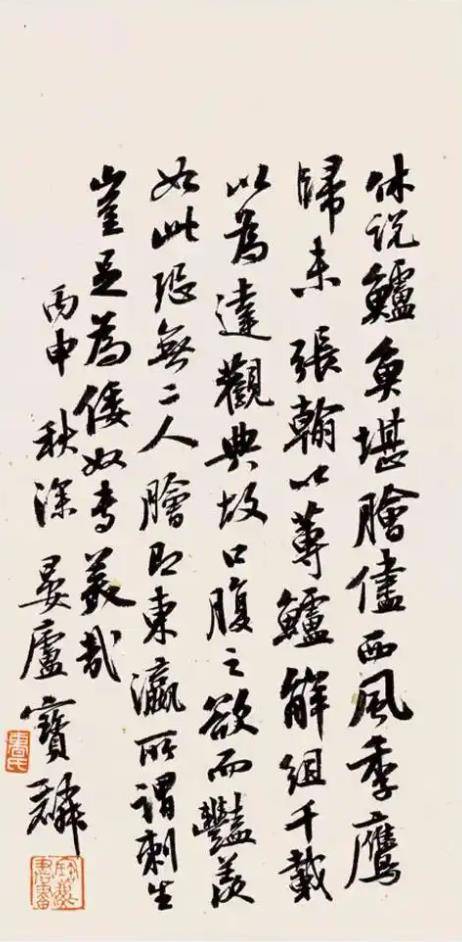 休说鱸魚堪膾儘西風季鷹
歸未張翰以蓴鱸解組千載
以為達觀典故口腹之欲而豔羨
如此恐無二人膾即東瀛所谓刺生
豈足為倭奴专美哉
丙申秋深晏廬寶麟